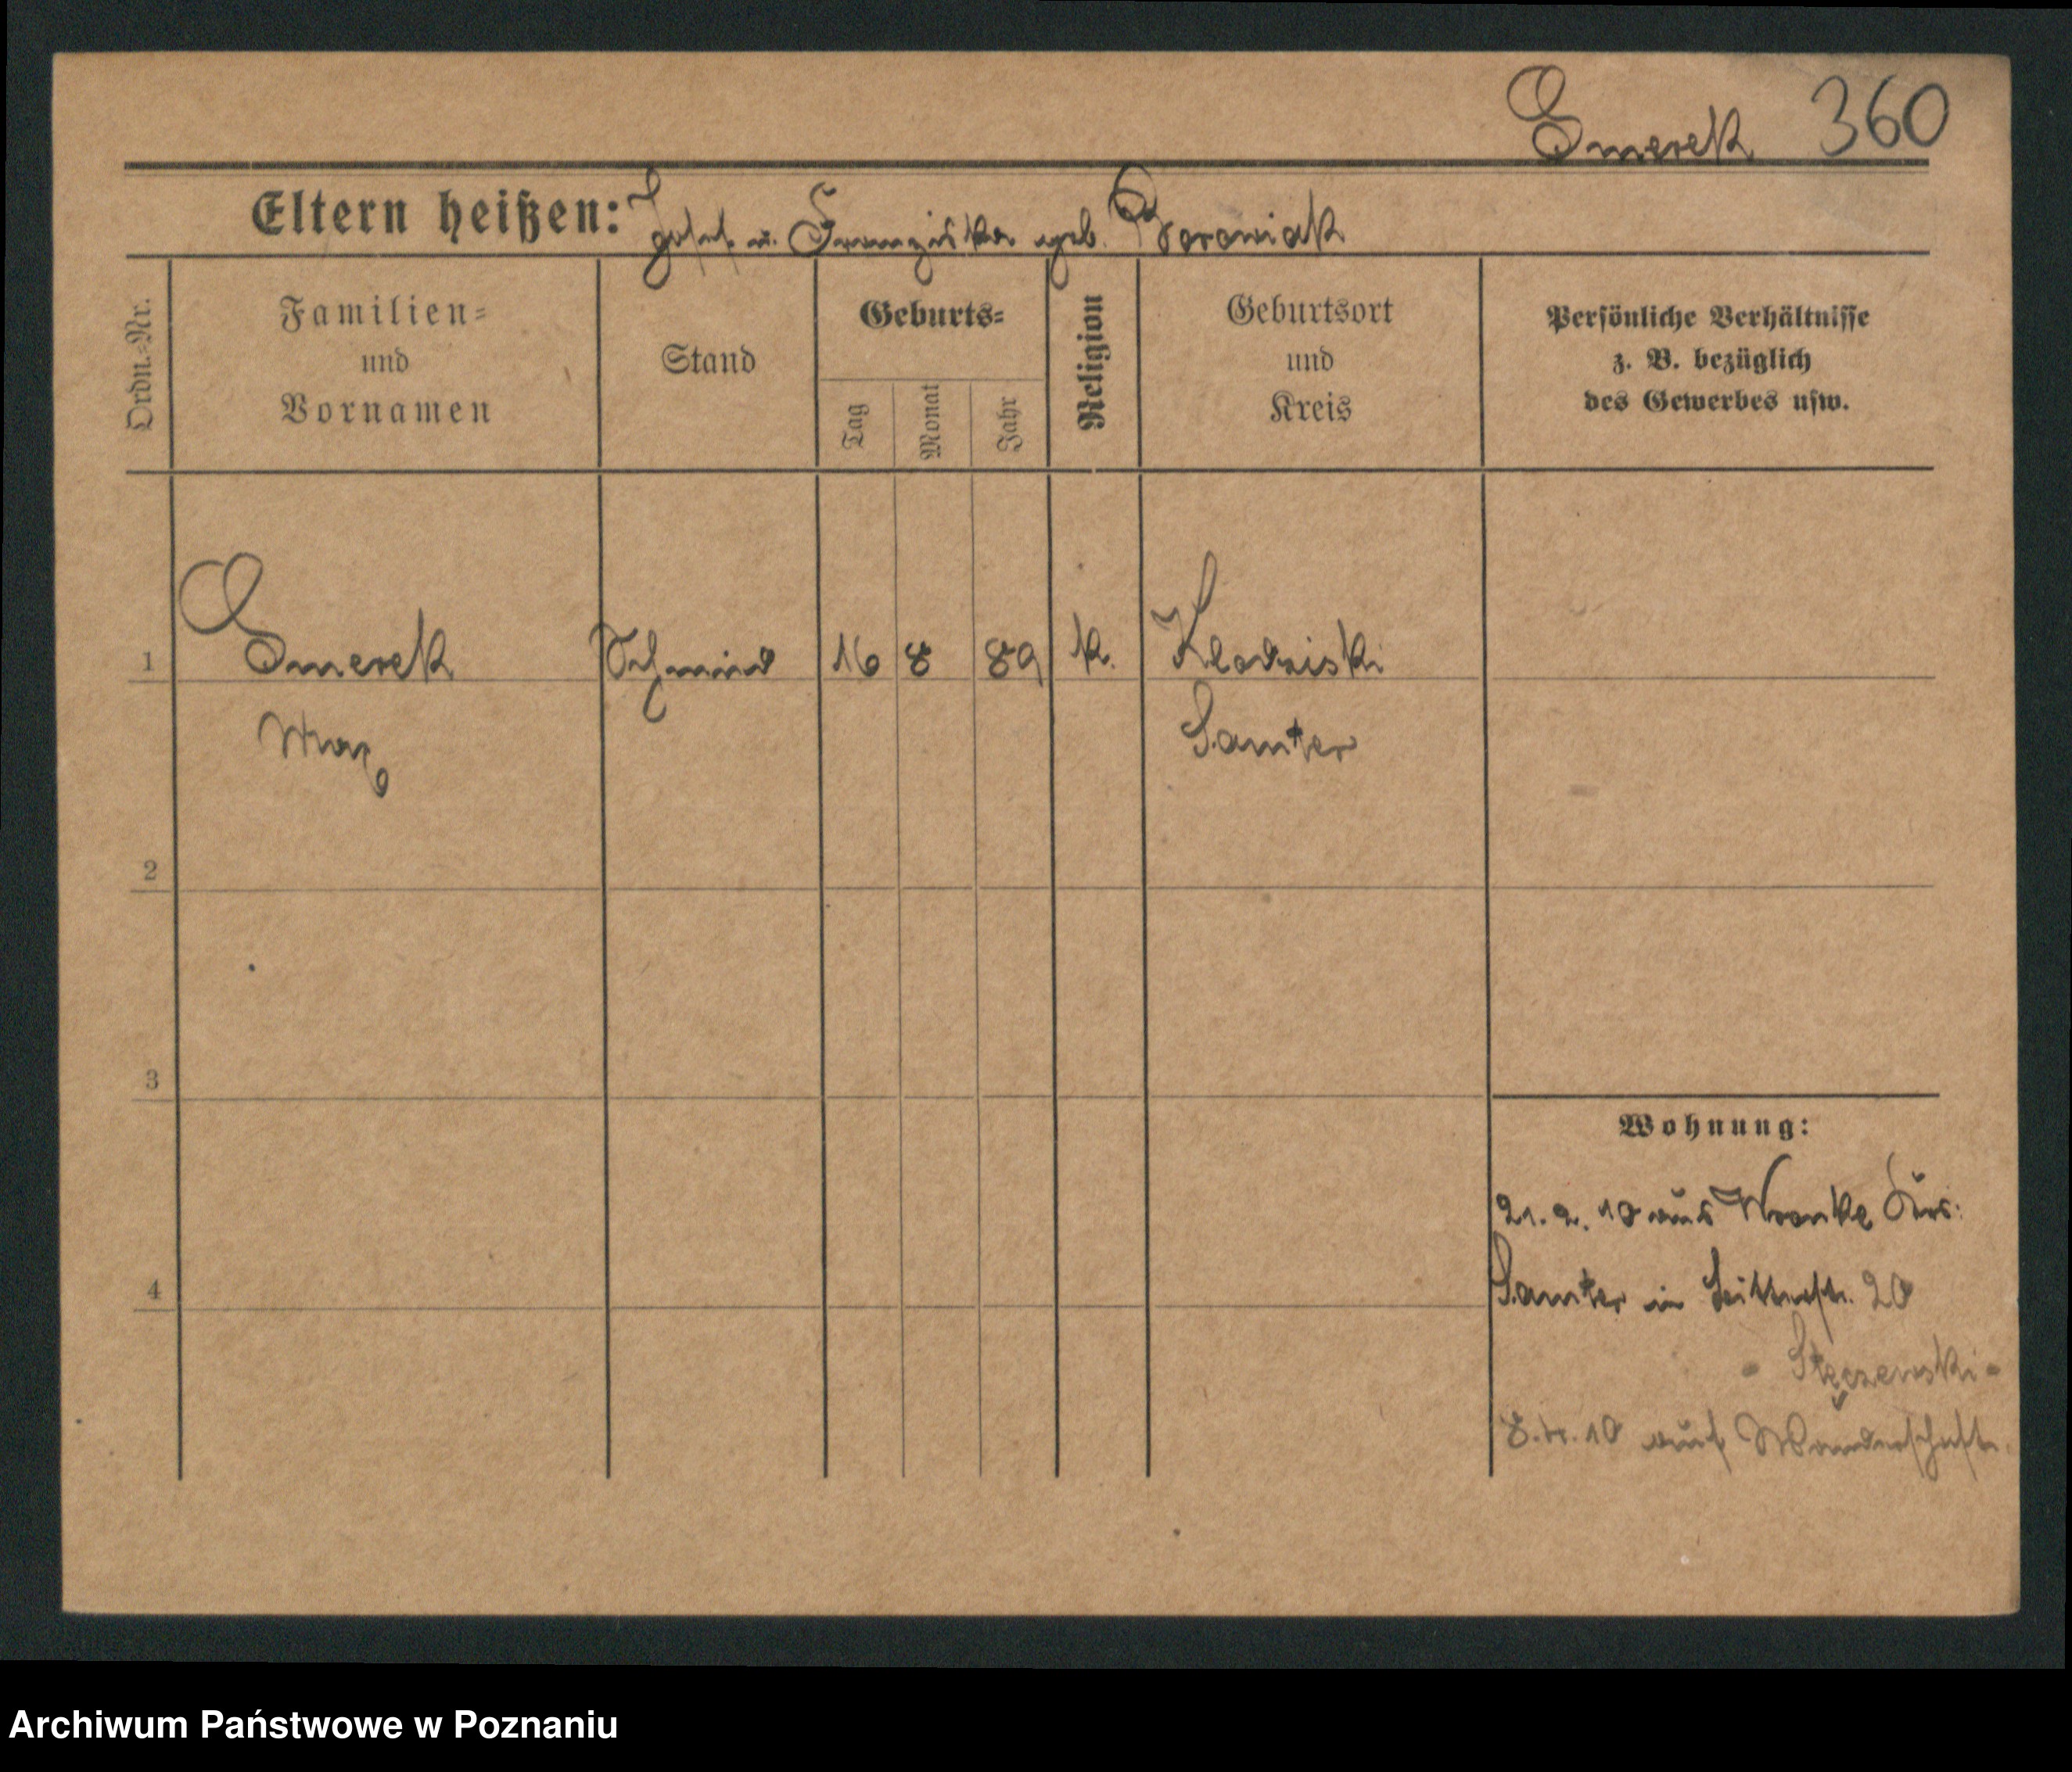 Emerek 360
Eltern heißen: Josef u. Franziska geb. Boroniak
Ordn.=Nr.
Familien=
und
Vornamen
Stand
Geburts=
Tag
Monat
Jahr
Religion
Geburtsort
und
Kreis
Persönliche Verhältnisse
z. B. bezüglich
des Gewerbes usw.
1 Emerek Schmied 16 8 89 k. Klodzisk
Max Samter
2
3
4
Wohnung:
21. 2. 10 aus Wronke Krs.
Samter in 20
- Stęszewski -
10 auf Wanderschaft.
Archiwum Państwowe w Poznaniu